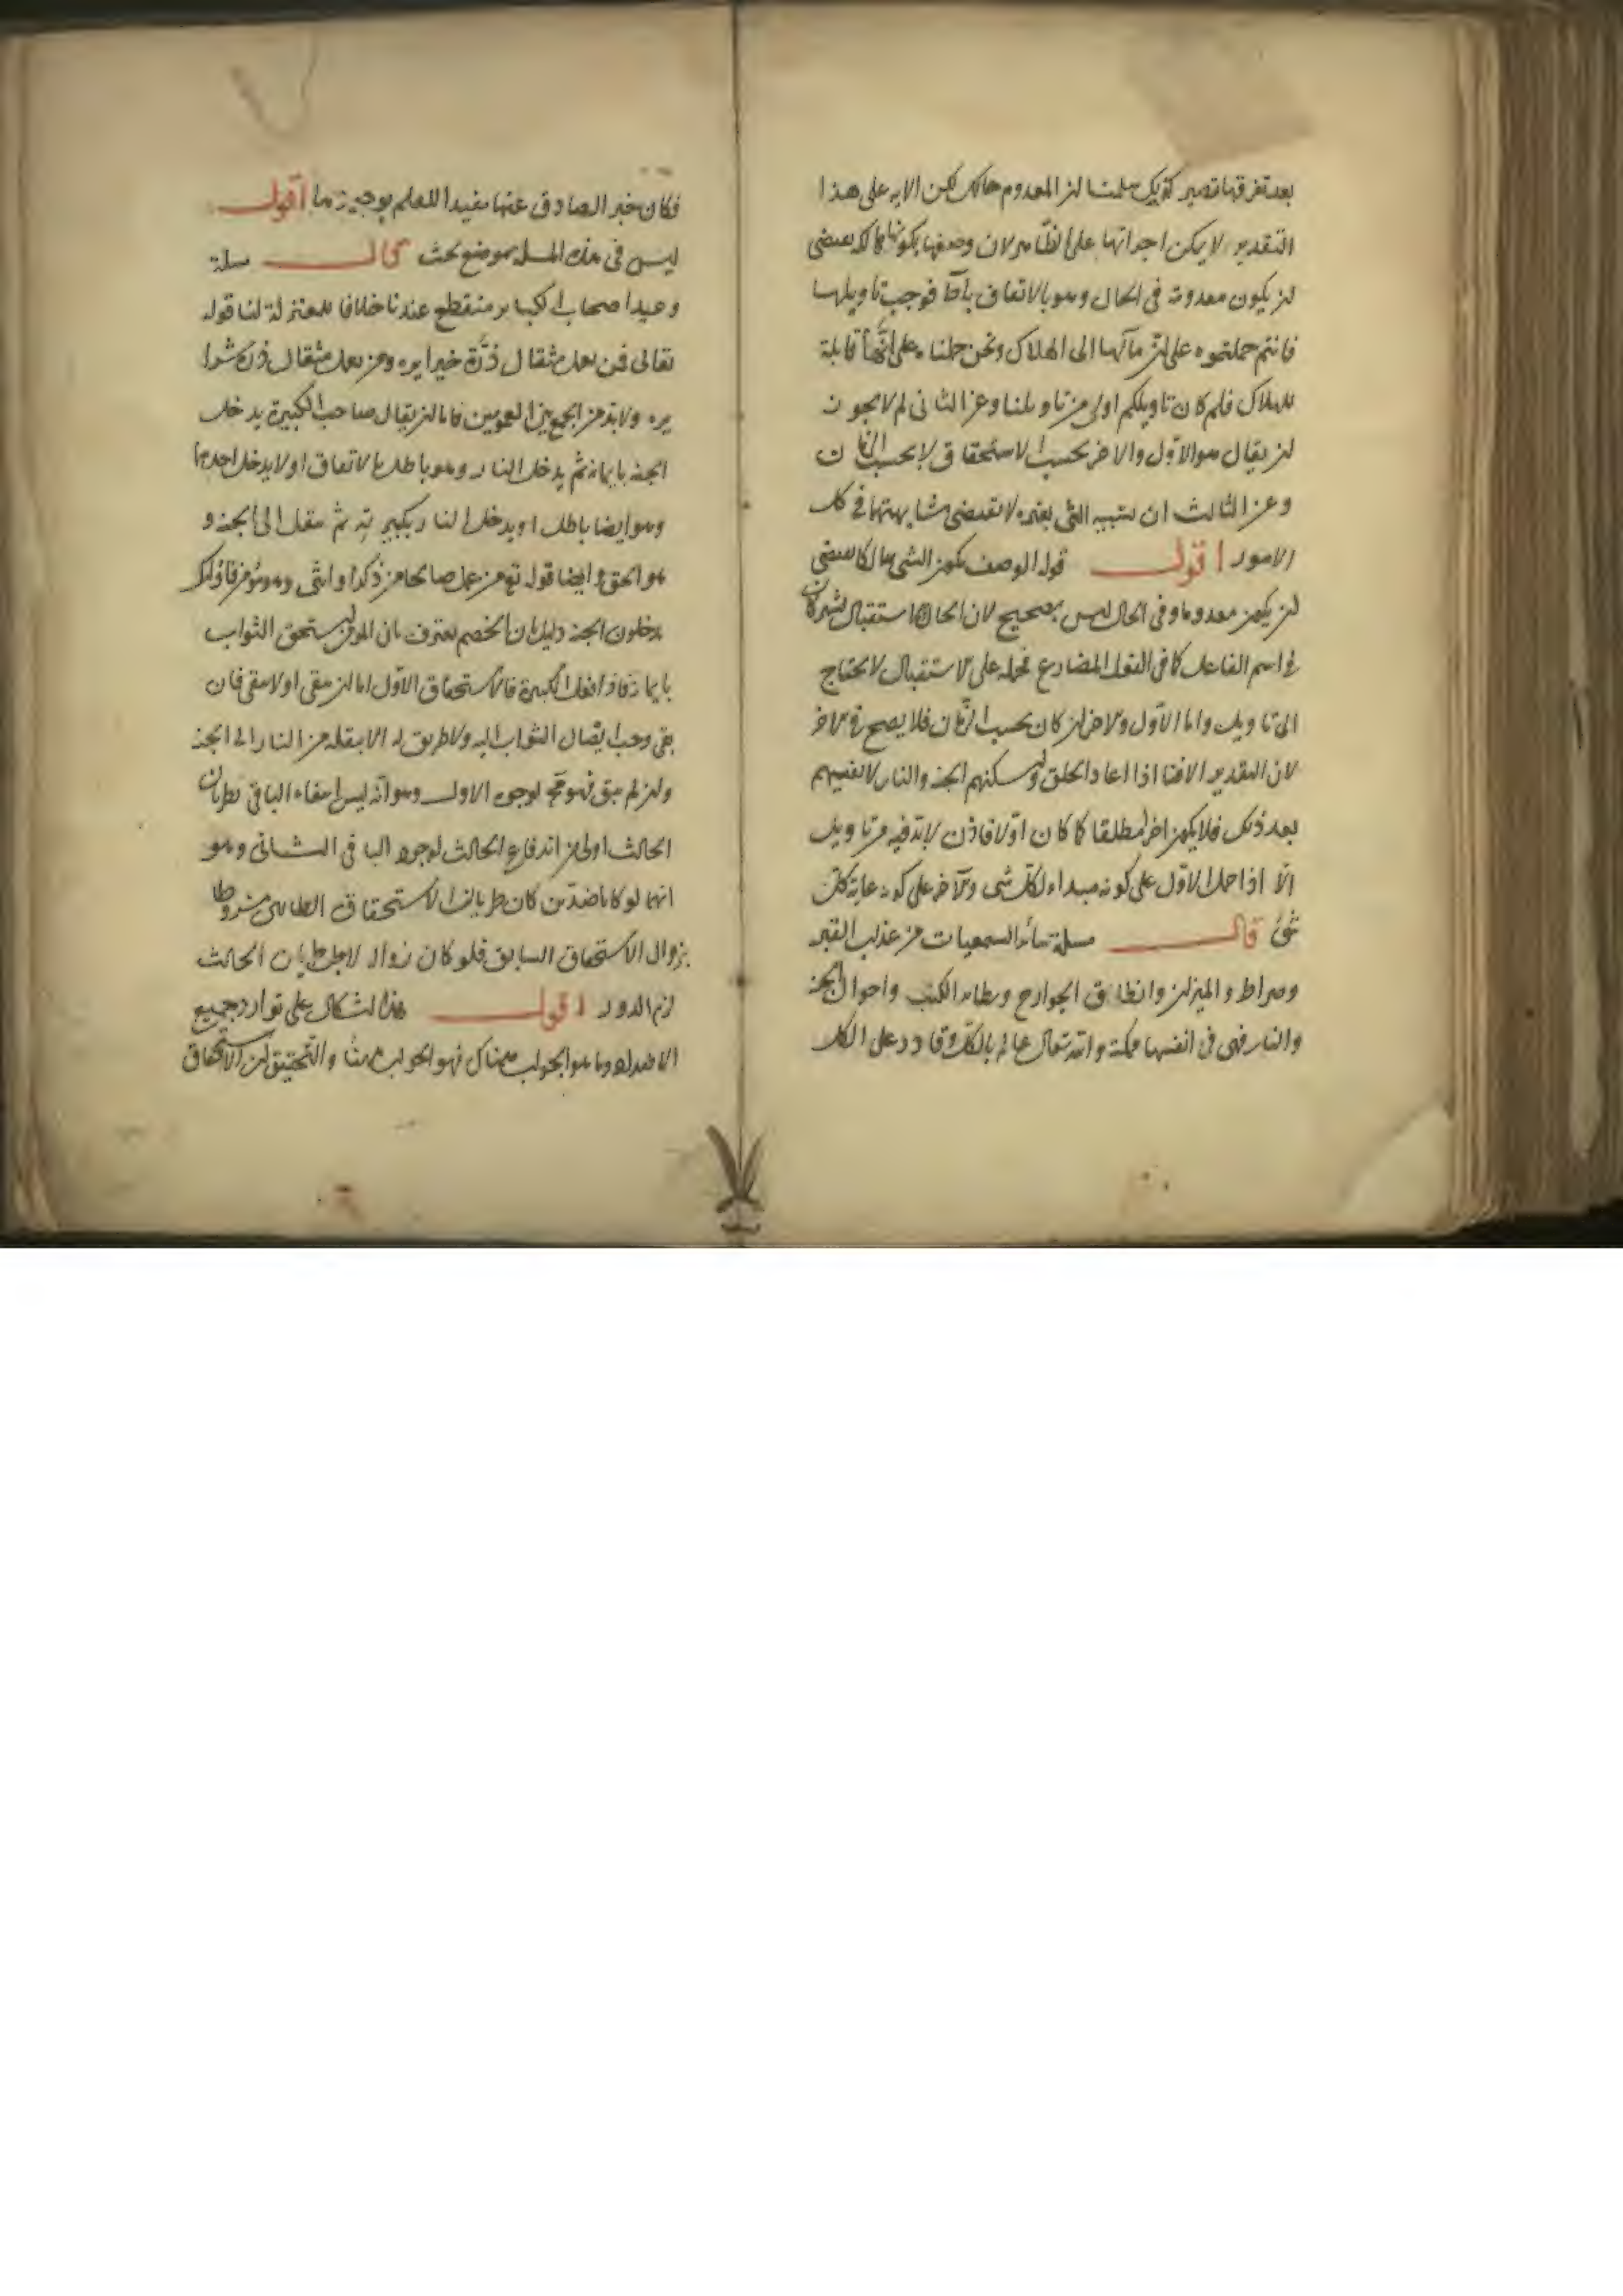 بعد تفرقها تصير كذلك سلمنا لن المعدوم هالك لكن الايه على هذا
التقدير لا يمكن اجراتها على الظاهر لان وصفها بكونها هالكه يقتضى
لن يكون معدومة فى الحال وهو بالاتفاق باطل فوجب تاويلها
فانتم حملتموه على لن مآلها الى الهلاك ونحن حملناه على انها قابلة
للهلاك فلم كان تاويلكم اولى من تاويلنا وعن الثانى لم لا يجوز
لن يقال هو الاول والاخر بحسب الاستحقاق لا بحسب الزمان
وعن الثالث ان تشبيه الشى بغيره لا يقتضى مشابهتها فى كل
الامور اقول قوله الوصف بكون الشى هالكا يقتضى
لن يكون معدوما فى الحال ليس بصحيح لان الحال والاستقبال يشتركان
فى اسم الفاعل كما فى الفعل المضارع فحمله على الاستقبال لا يحتاج
الى تاويل واما الاول والاخر لن كان بحسب الزمان فلا يصح فى الاخر
لان التقدير الافنا اذا اعاد الخلق واسكنهم الجنة والنار لا يفنيهم
بعد ذلك فلا يكون اخرا مطلقا كما كان اولا فاذن لا بد فيه من تاويل
الا اذا حمل الاول على كونه مبداء لكل شى والاخر على كونه غاية كل
شئ قال مسلة سائر السمعيات من عذاب القبر
وصراط والميزان وانطاق الجوارح وتطاير الكتب واحوال الجنة
والنار فهى فى انفسها ممكنة والله تعالى عالم بالكل وقادر على الكل
فكان خبر الصادق عنها مفيدا للعلم بوجودها اقول
ليس فى هذه المسلة موضع بحث قال مسلة
وعيد اصحاب الكباير منقطع عندنا خلافا للمعتزلة لنا قوله
تعالى فمن يعمل مثقال ذرة خيرا يره ومن يعمل مثقال ذرة شرا
يره ولا بد من الجمع بين العمومين فاما لن يقال صاحب الكبيرة يدخل
الجنة بايمانه ثم يدخل النار وهو باطل بالاتفاق او لا يدخل احدهما
وهو ايضا باطل او يدخل النار بكبيرته ثم ينقل الى الجنة و
هو الحق وايضا قوله تع من عمل صالحا من ذكر او انثى وهو مؤمن فاولئك
يدخلون الجنة دليل ان الخصم معترف بان المؤمن يستحق الثواب
بايمانه فاذا فعل الكبيرة فالاستحقاق الاول اما لن يبقى او لا يبقى فان
بقى وجب ايصال الثواب اليه ولا طريق له الا بنقله من النار الى الجنة
ولن لم يبق فهو مح لوجوه الاول وهو انه ليس انتفاء الباقى بطريان
الحادث اولى من اندفاع الحادث لوجود الباقى الثانى وهو
انهما لو كانا ضدين كان طريان الاستحقاق الطارى مشروطا
بزوال الاستحقاق السابق فلو كان زواله لاجل طريان الحادث
لزم الدور اقول هذا اشكال على توارد جميع
الاضداد وما هو الجواب هناك فهو الجواب هنا والتحقيق لن الاستحقاق